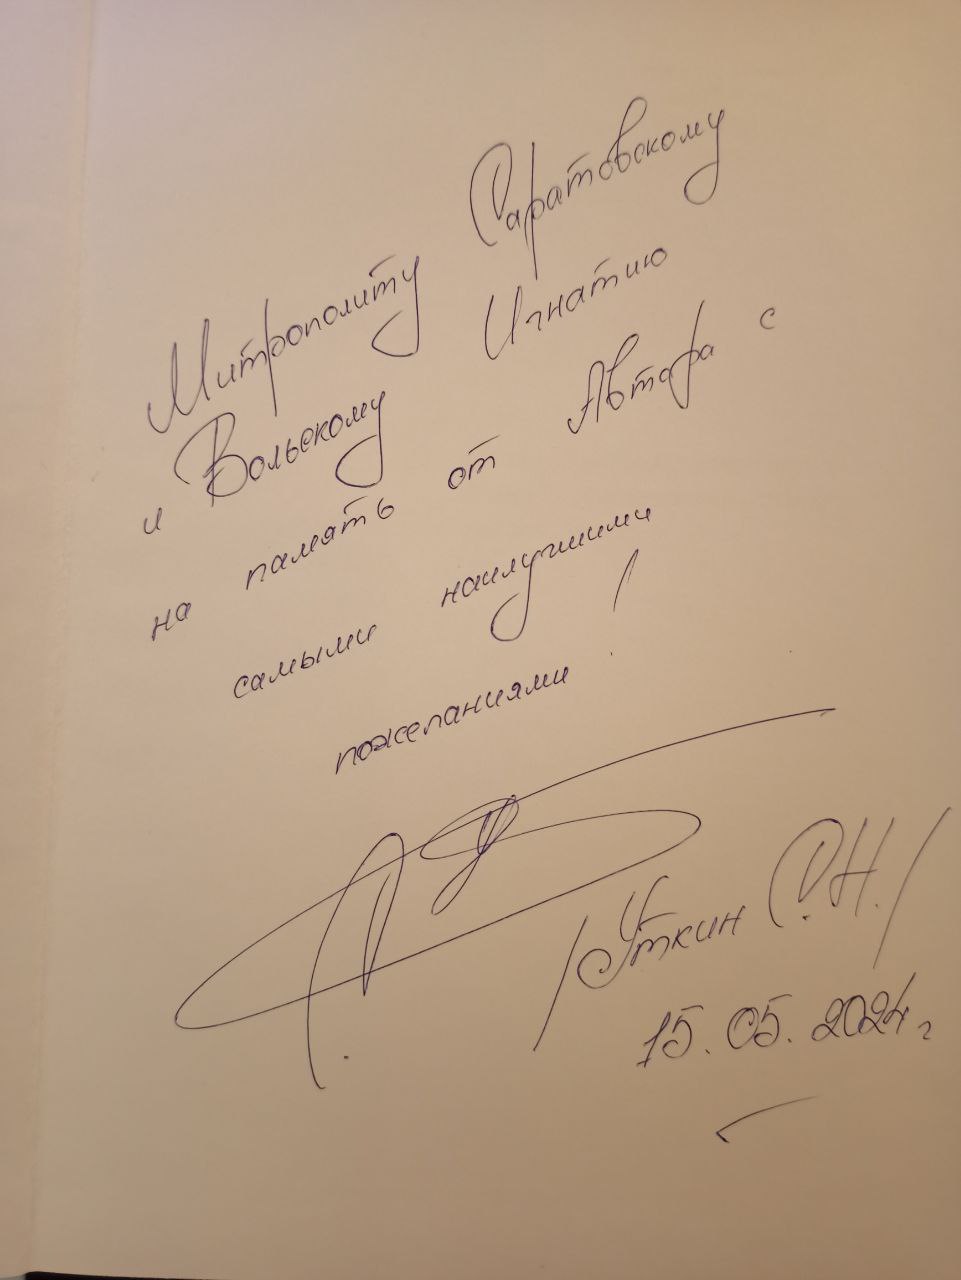 Митрополиту Саратовскому
и Вольскому Игнатию
на память от Автора с
самыми наилучшими
пожеланиями!
/Уткин С.Н./
15.05.2024 г